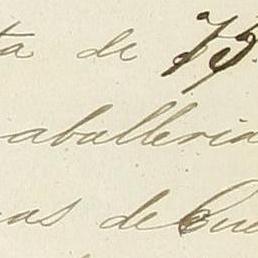 ta de 75
aballeria
as de Cue